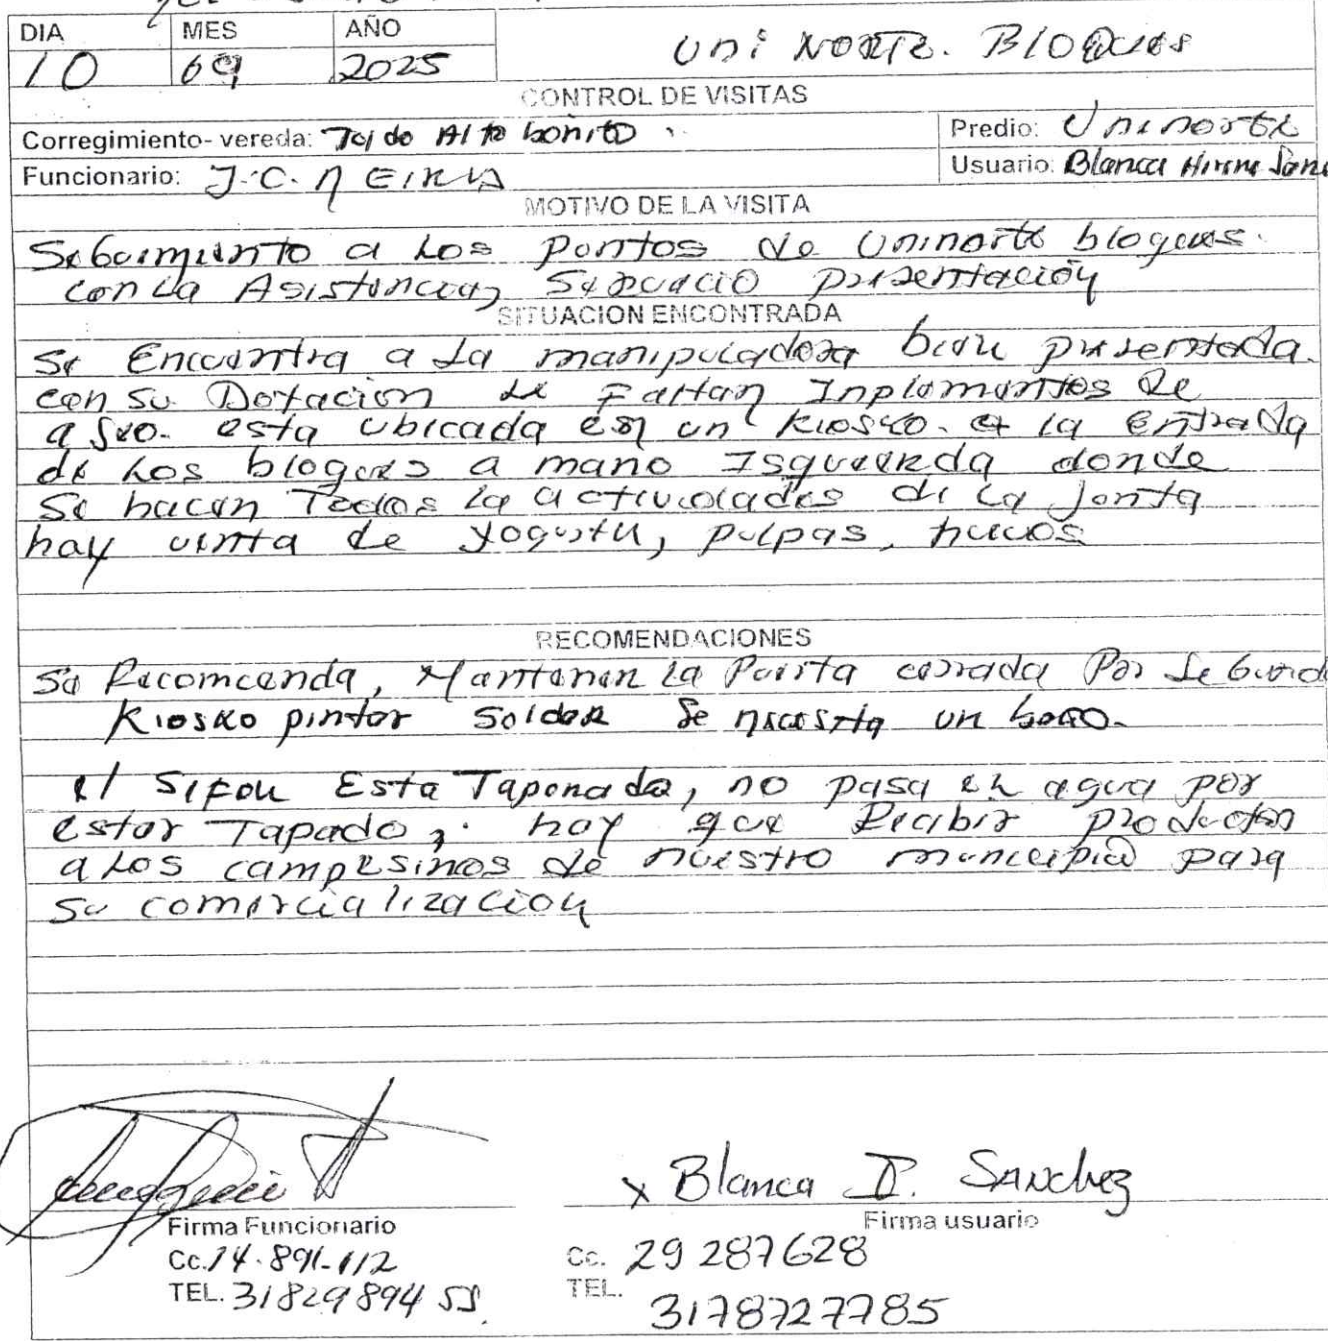 DIA MES AÑO
10 09 2025 Uni NORTE. BLOQUES
CONTROL DE VISITAS
Corregimiento- vereda: Toldo Alto bonito Predio: Uninorte
Funcionario: J.C. NEIRA Usuario: Blanca
MOTIVO DE LA VISITA
Seguimiento a Los Puntos de Uninorte bloques.
con La Asistencia, Servicio presentación
SITUACION ENCONTRADA
Se Encuentra a La manipuladora bien presentada.
con su Dotacion Le Faltan Inplementos de
aseo. esta ubicada en un Kiosko. a la entrada
de Los bloques a mano Isquierda donde
Se hacen Todas la actividades de la Junta
hay venta de yogurth, pulpas, huevos
RECOMENDACIONES
Se Recomienda, Mantener La Puerta cerrada Por
Kiosko pintar Soldar Se necesita un
el Sifon Esta Taponado, no pasa el agua por
estar Tapado, hay que Recibir productos
a Los campesinos de nuestro municipio para
su comercialización
x Blanca I. SANchez
Firma Funcionario Firma usuario
Cc. 14.891.112 Cc. 29 287628
TEL. 3182989455 TEL. 3178727785